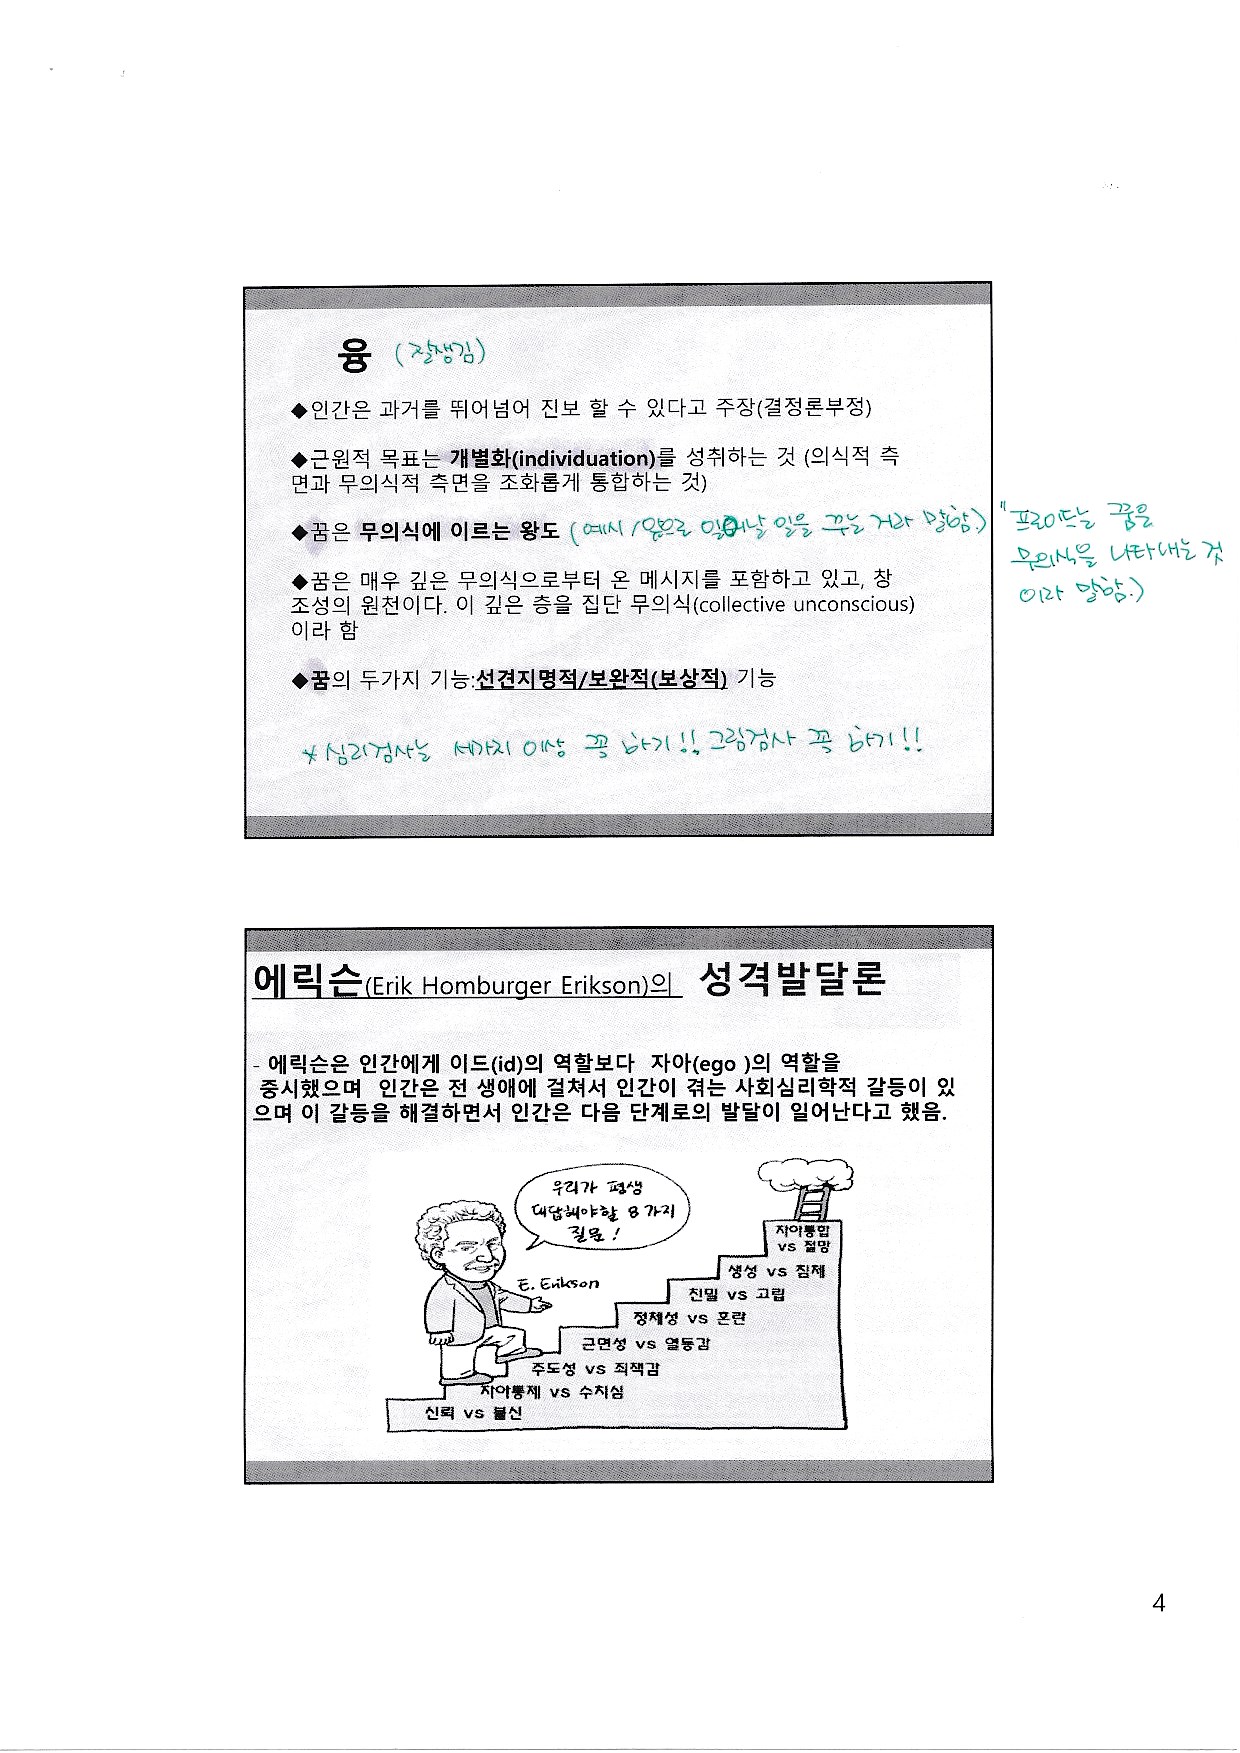 융 (잘생김)
◆인간은 과거를 뛰어넘어 진보 할 수 있다고 주장(결정론부정)
◆근원적 목표는 개별화(individuation)를 성취하는 것 (의식적 측
면과 무의식적 측면을 조화롭게 통합하는 것)
◆꿈은 무의식에 이르는 왕도 (예시 / 앞으로 일어날 일을 꾸는 거라 말함.)
"프로이드는 꿈을
무의식을 나타내는 것
이라 말함.)
◆꿈은 매우 깊은 무의식으로부터 온 메시지를 포함하고 있고, 창
조성의 원천이다. 이 깊은 층을 집단 무의식(collective unconscious)
이라 함
◆꿈의 두가지 기능:선견지명적/보완적(보상적) 기능
* 심리검사는 세가지 이상 꼭 하기!! 그림검사 꼭 하기!!
에릭슨(Erik Homburger Erikson)의 성격발달론
- 에릭슨은 인간에게 이드(id)의 역할보다 자아(ego )의 역할을
중시했으며 인간은 전 생애에 걸쳐서 인간이 겪는 사회심리학적 갈등이 있
으며 이 갈등을 해결하면서 인간은 다음 단계로의 발달이 일어난다고 했음.
우리가 평생
대답해야할 8가지
질문!
E. Erikson
자아통합
vs 절망
생성 vs 침체
친밀 vs 고립
정체성 vs 혼란
근면성 vs 열등감
주도성 vs 죄책감
자아통제 vs 수치심
신뢰 vs 불신
4